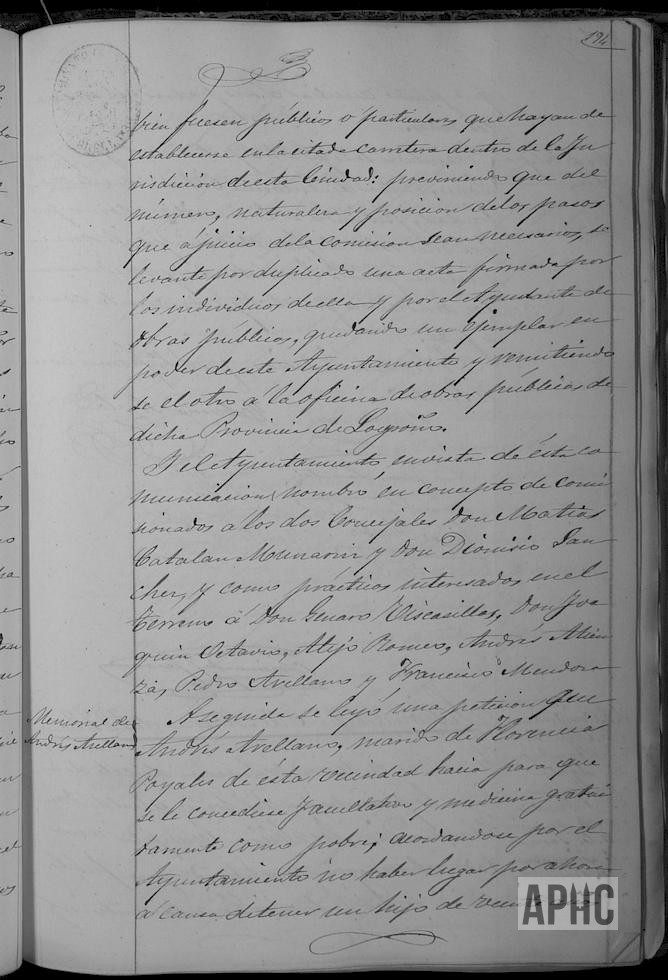 194
bien fuesen públicos ó particulares que hayan de
establecerse en la citada carretera dentro de la Ju
risdiccion de esta Ciudad: previniendo que del
número, naturaleza y posicion de los pasos
que á juicio de la comision sean necesarios, se
levante por duplicado una acta firmada por
los individuos de ella y por el Ayudante de
obras públicas, quedando un ejemplar en
poder de este Ayuntamiento y remitiendo
se el otro á la oficina de obras públicas de
dicha Provincia de Logroño.
Y el Ayuntamiento, en vista de ésta co
municacion, nombró en concepto de comi
sionados a los dos Concejales Don Matias
Catalan Munarriz y Don Dionisio San
chez, y como practicos interesados en el
terreno á Don Genaro Viscasillas, Don Joa
quin Octavio, Alejo Romeo, Andrés Atien
za, Pedro Arellano y Francisco Mendoza
Memorial de
Andrés Arellano
Aseguida se leyó una peticion que
Andrés Arellano, marido de Florencia
Poyales de ésta vecindad hacia para que
se le concediese Facultativo y medicina gratui
tamente como pobre; acordandose por el
Ayuntamiento no haber lugar por ahora
á causa de tener un hijo de veinte
APHC